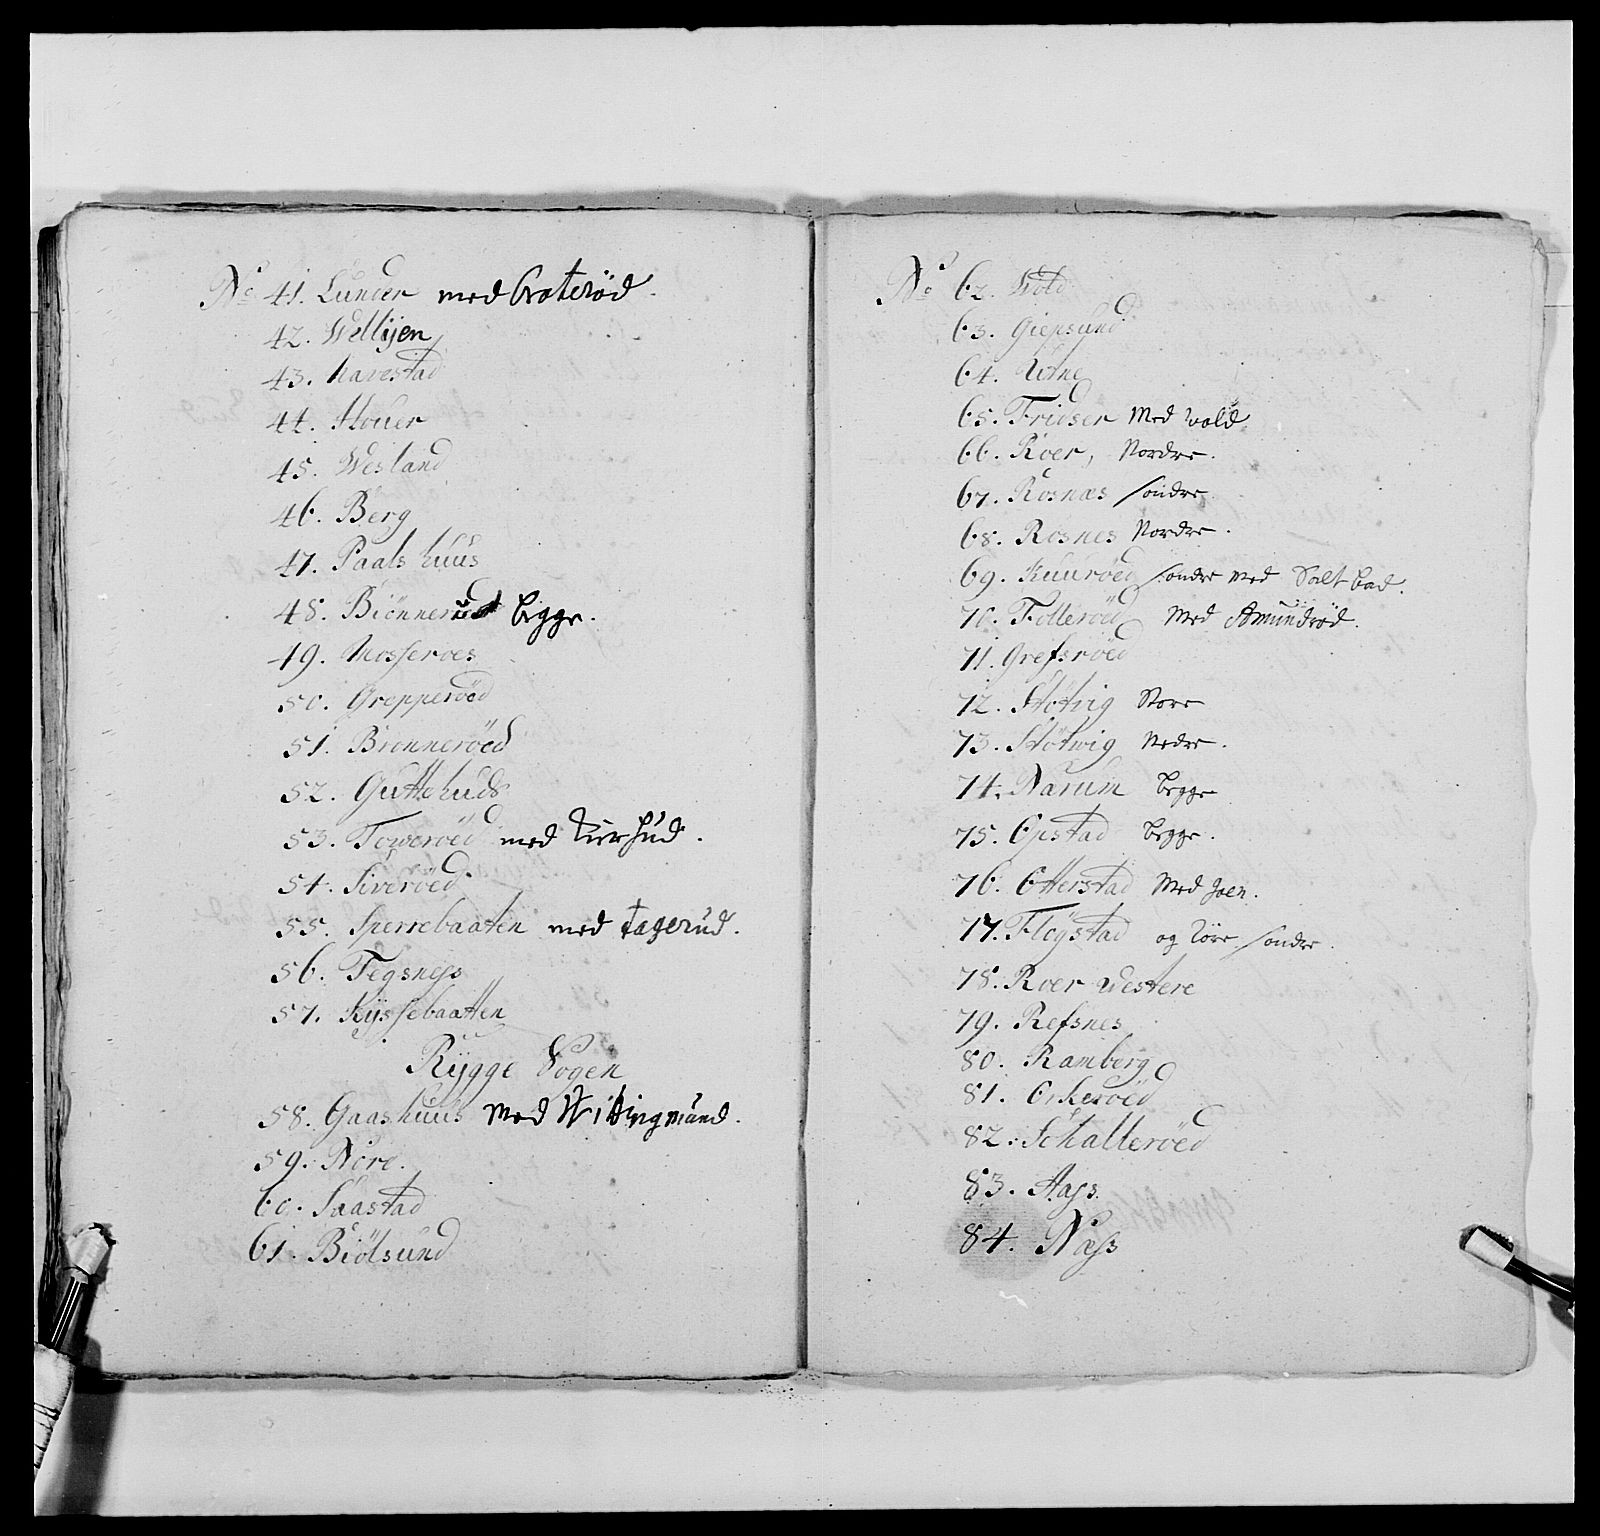 No 41. Lunder med Graterød.
42. Wellijen
43. Navestad
44. Houer
45. Wesland
46. Berg
47. Paalshuus
48. Biönnerud begge.
49. Mosseroes
50. Grepperöed
51. Brönneröed
52. Guttehuds
53. Toweröed med
54. Siveröed.
55. Sperrebaaten med tagerud.
56. Tegsness
57. Kyssebaatten
Rÿgge Sogen
58. Gaashuus med Wittingmund.
59. Nöre.
60. Saastad
61. Biölsund
No 62. Wold
63. Giepsund
64. Urne
65. Fridser med vold
66. Roer, Nordre.
67. Rosnæs söndre
68. Rosnes Nordre.
69. Kuuröed söndre med Saltbad.
70. Folleröed med Amundrød.
71. Grefsröed
72. Störig Store
73. Stötwig Nedre.
74. Narum begge
75. Opstad begge.
76. Otterstad med Joen.
77. Flöystad og söndre.
78. Roer Westere
79. Refsnes
80. Ramberg
81. Orkeröed
82. Schalleröed
83. Aass.
84. Næss